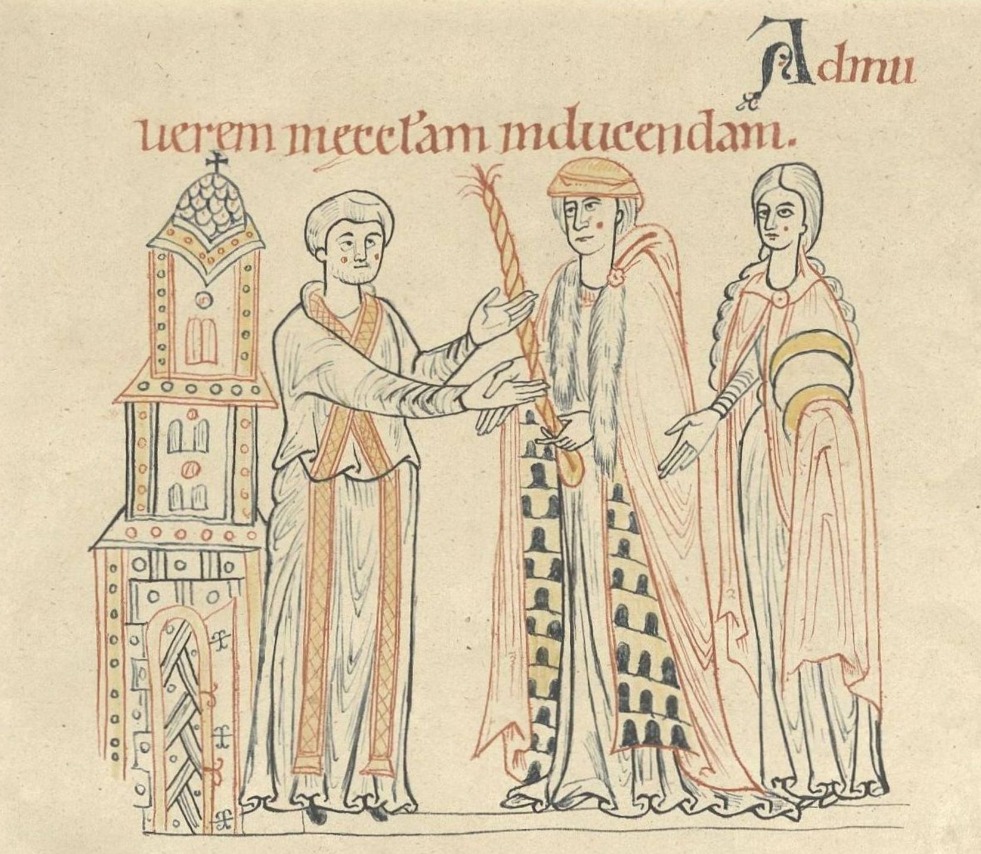 Admu
lierem in eccl'am inducendam.